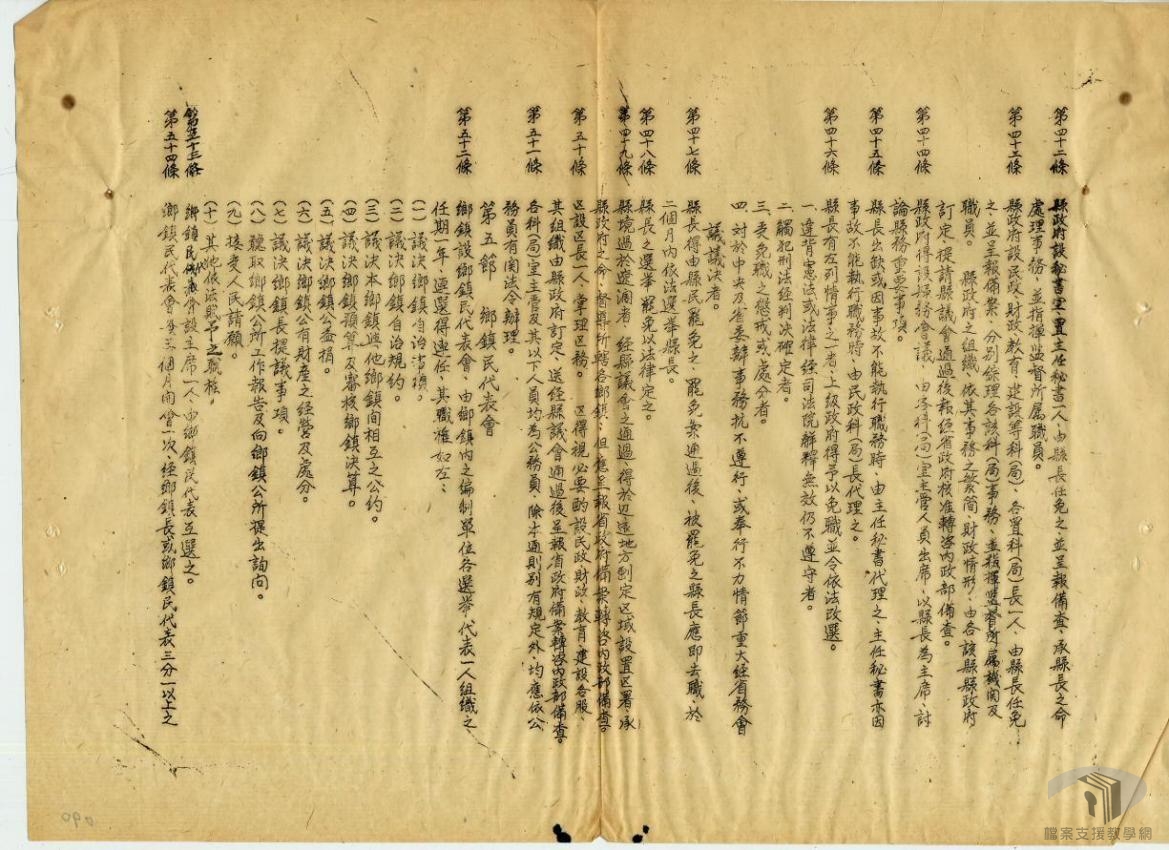 第四十二條　縣政府設秘書室置主任秘書一人、由縣長任免之、並呈報備查、承縣長之命
處理事務、並指揮監督所属職員。
第四十三條　縣政府設民政財政教育建設等科(局)、各置科(局)長一人、由縣長任免
之、並呈報備案、分别綜理各該科(局)事務、並指揮監督所属機関及
職員。　縣政府之組織、依其事務之繁简、財政情形、由各該縣縣政府
訂定、提請縣議會通過後報經省政府核准轉咨内政部備查。
第四十四條　縣政府得設縣務會議、由各科(局)室主管人員出席、以縣長為主席、討
論縣務重要事項。
第四十五條　縣長出缺或因事故不能執行職務時、由主任秘書代理之、主任秘書亦因
事故不能執行職務時、由民政科(局)長代理之。
第四十六條　縣長有左列情事之一者、上級政府得予以免職並令依法改選。
一、違背憲法或法律經司法院解釋無效仍不遵守者。
二、觸犯刑法經判决確定者。
三、受免職之懲戒或處分者。
四、對於中央及省委辦事務抗不遵行、或奉行不力情節重大經省務會
議議决者。
第四十七條　縣長得由縣民罷免之、罷免案通過後、被罷免之縣長應即去職、於
二個月内依法選举縣長。
第四十八條　縣長之選举罷免以法律定之。
第四十九條　縣境過於遼濶者、經縣議會之通過、得於辺遠地方劃定区域設置区署承
縣政府之命、督導所轄各鄉鎮、但應呈報省政府備案轉咨内政部備查。
第五十條　区設区長一人、掌理区務。　区得視必要酌設民政財政、教育建設各股、
其組織由縣政府訂定、送經縣議會通過後呈報省政府備案轉咨内政部備查。
第五十一條　各科(局)室主管及其以下人員均為公務員、除本通則别有規定外、均應依公
務員有関法令辦理。
第五節　鄉鎮民代表會
第五十二條　鄉鎮設鄉鎮民代表會、由鄉鎮内之编制單位各選举代表一人組織之、
任期一年、連選得連任、其職權如左：
(一)議决鄉鎮自治事項。
(二)議决鄉鎮自治規约。
(三)議决本鄉鎮與他鄉鎮間相互之公约。
(四)議决鄉鎮預算及審核鄉鎮决算。
(五)議决鄉鎮公益捐。
(六)議决鄉鎮公有財產之经营及處分。
(七)議决鄉鎮長提議事項。
(八)聽取鄉鎮公所工作報告及向鄉鎮公所提出詢问。
(九)接受人民請願。
(十)其他依法賦予之職权。
第五十三條　鄉鎮民代表會設主席一人、由鄉鎮民代表互選之。
第五十四條　鄉鎮民代表會每三個月開會一次、經鄉鎮長或鄉鎮民代表三分一以上之
090
檔案支援教學網